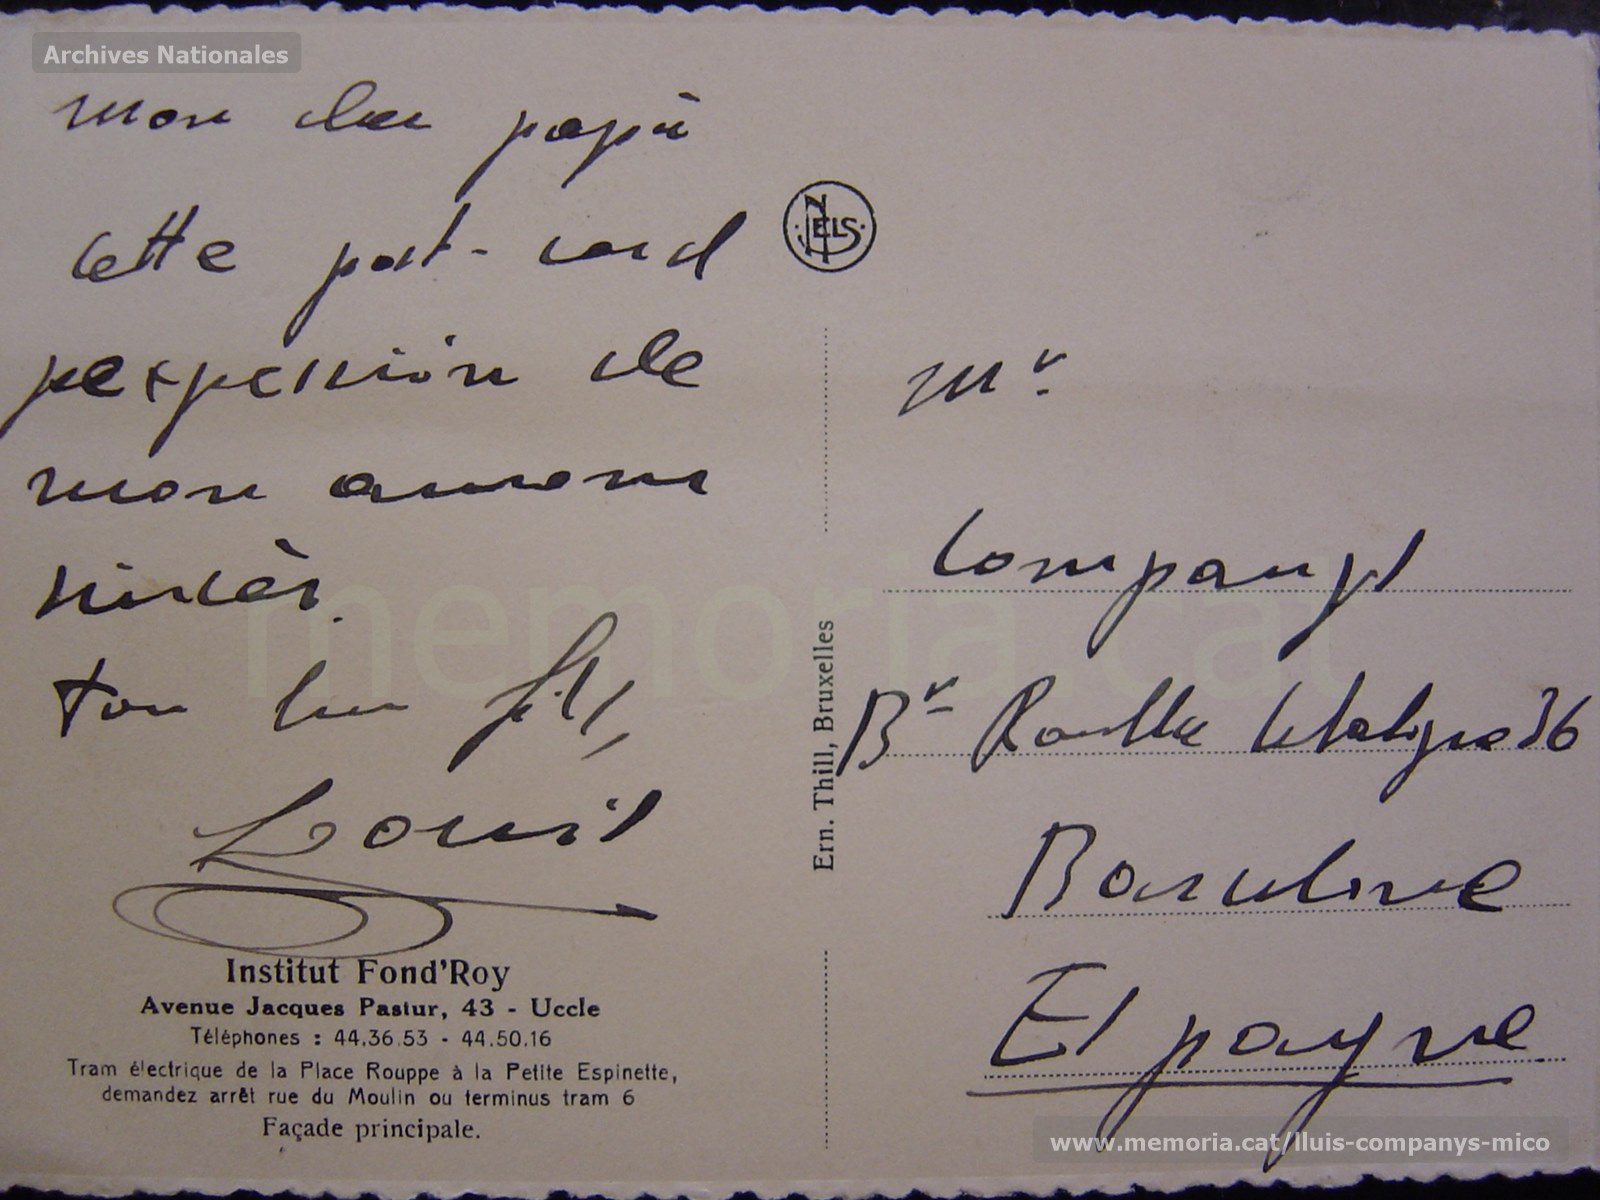 Archives Nationales
mon cher papà
cette post-card
l'expression de
mon amour
sincèr.
ton fils,
Louis
Institut Fond'Roy
Avenue Jacques Pastur, 43 - Uccle
Téléphones : 44.36.53 - 44.50.16
Tram électrique de la Place Rouppe à la Petite Espinette,
demandez arrêt rue du Moulin ou terminus tram 6
Façade principale.
NELS
Ern. Thill, Bruxelles
Mr.
Companys
36
Barcelone
Espagne
memoria.cat
www.memoria.cat/lluis-companys-mico